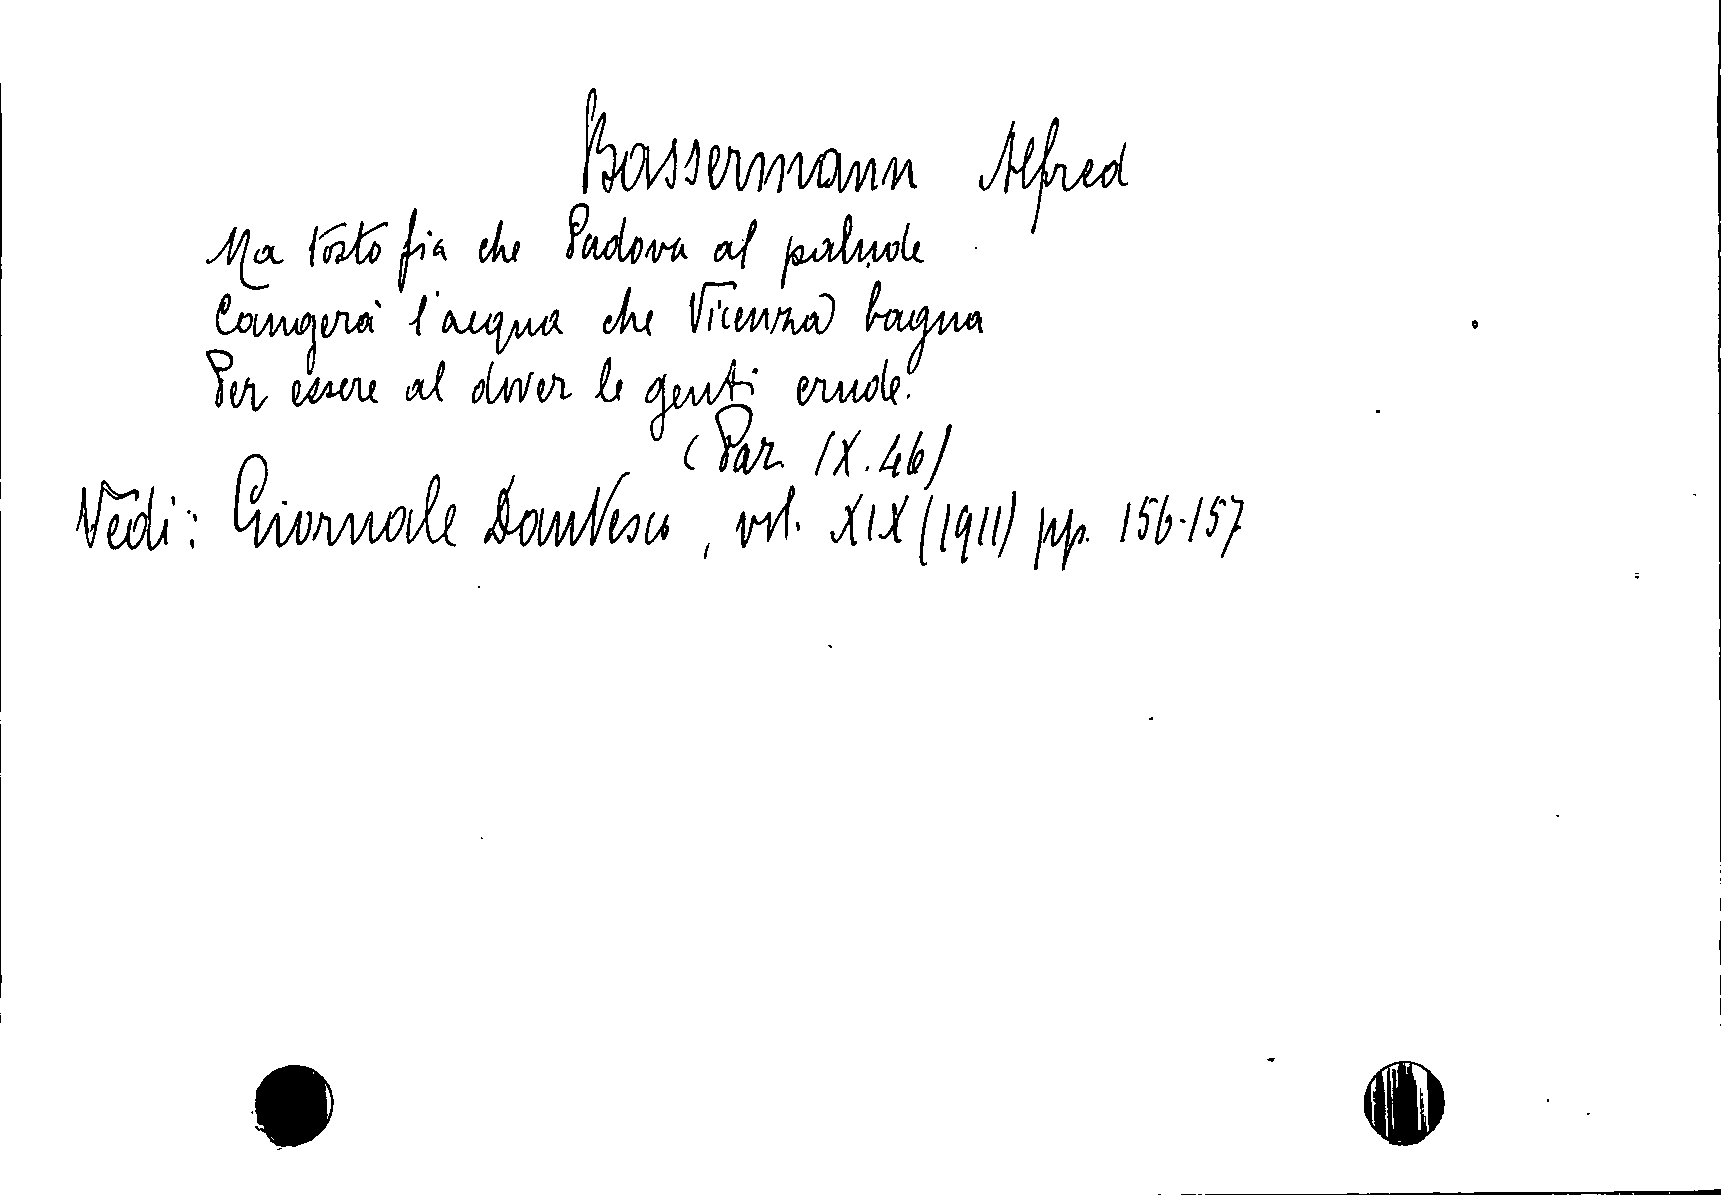 Bassermann Alfred
Ma tosto fia che Padova al palude
Cangerà l'acqua che Vicenza bagna
Per essere al dover le genti crude.
(Par. IX. 46)
Vedi: Giornale Dantesco, vol. XIX (1911) pp. 156-157